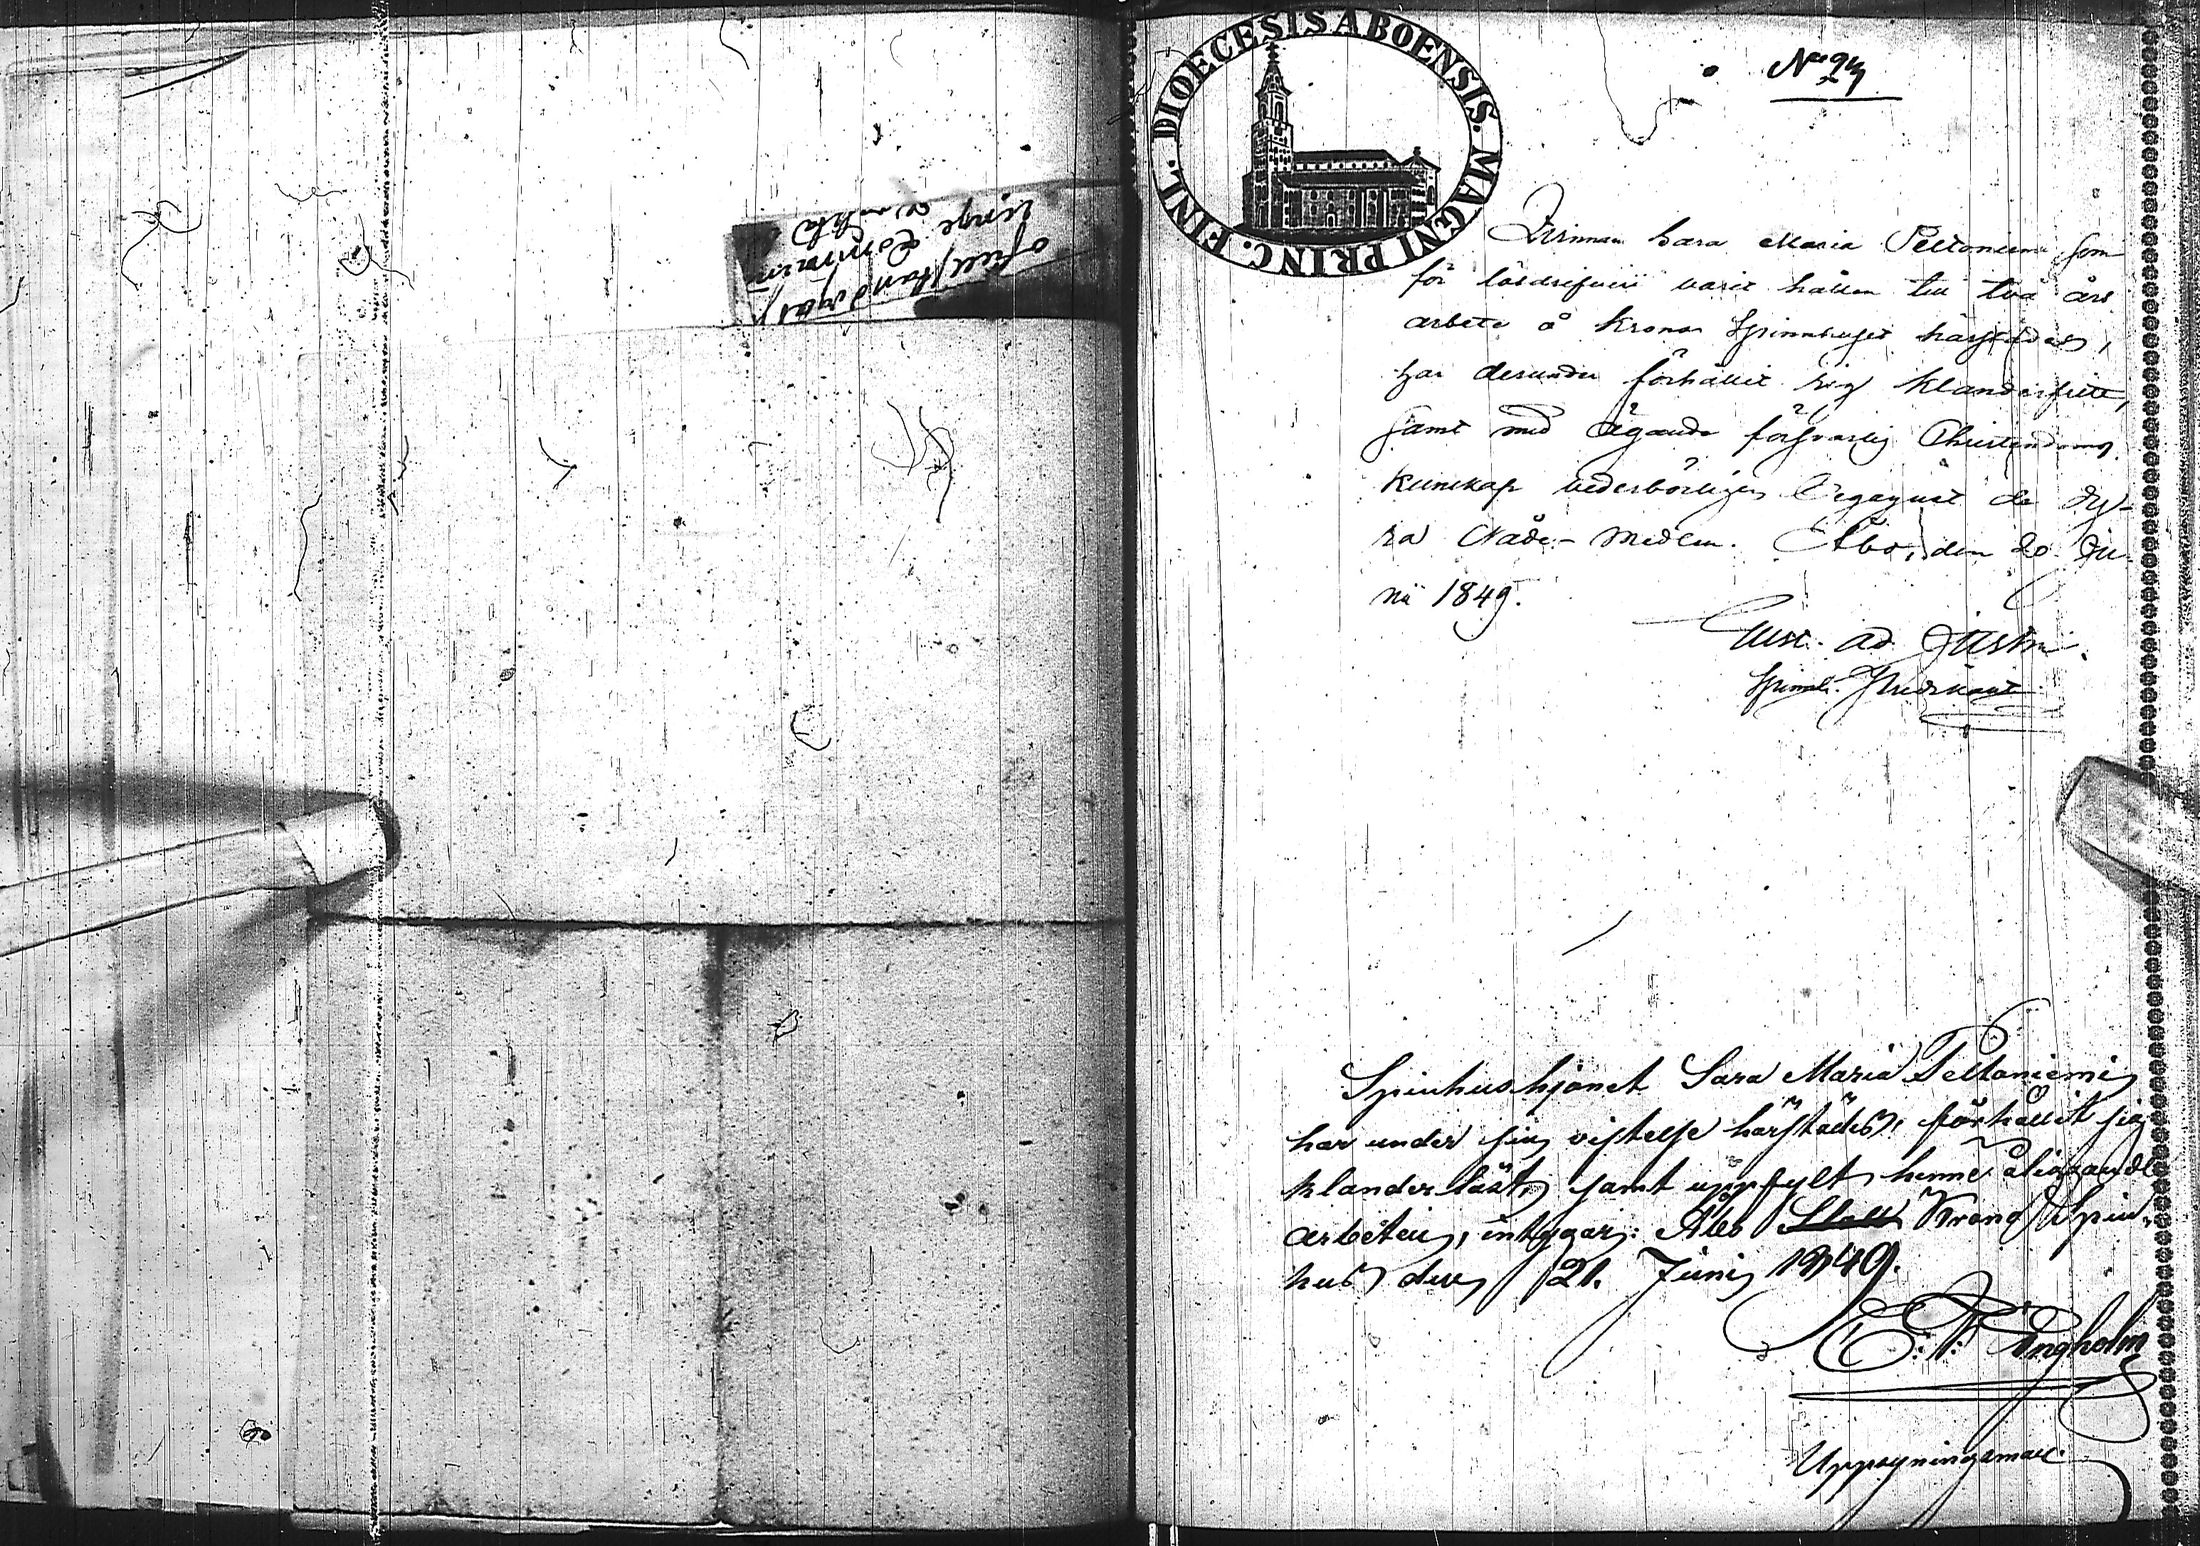 DIOECESIS ABOENSIS. MAGNI PRINC. FINL.
Qvinnan Sara Maria Peltoniemi som
för lösdrifveri varit hållen till två års
arbete å Krono Spinnhuset härstädes,
har derunder förhållit sig klanderfritt,
samt med ägande försvarlig Christendoms
kunskap vederbörligen begagnat de dy-
ra Nåde-medlen. Åbo, den 20 Ju-
nii 1849.
Gust. Ad.
Spinnh. Predikant
Spinhushjonet Sara Maria Peltoniemi
har under sin vistelse härstädes, förhållit sig
klanderlöst, samt uppfylt henne åliggande
arbeten, intygar: Åbo Slott Krono Spin-
hus den 21. Junii 1849.
Engholm
Uppsyningsman.